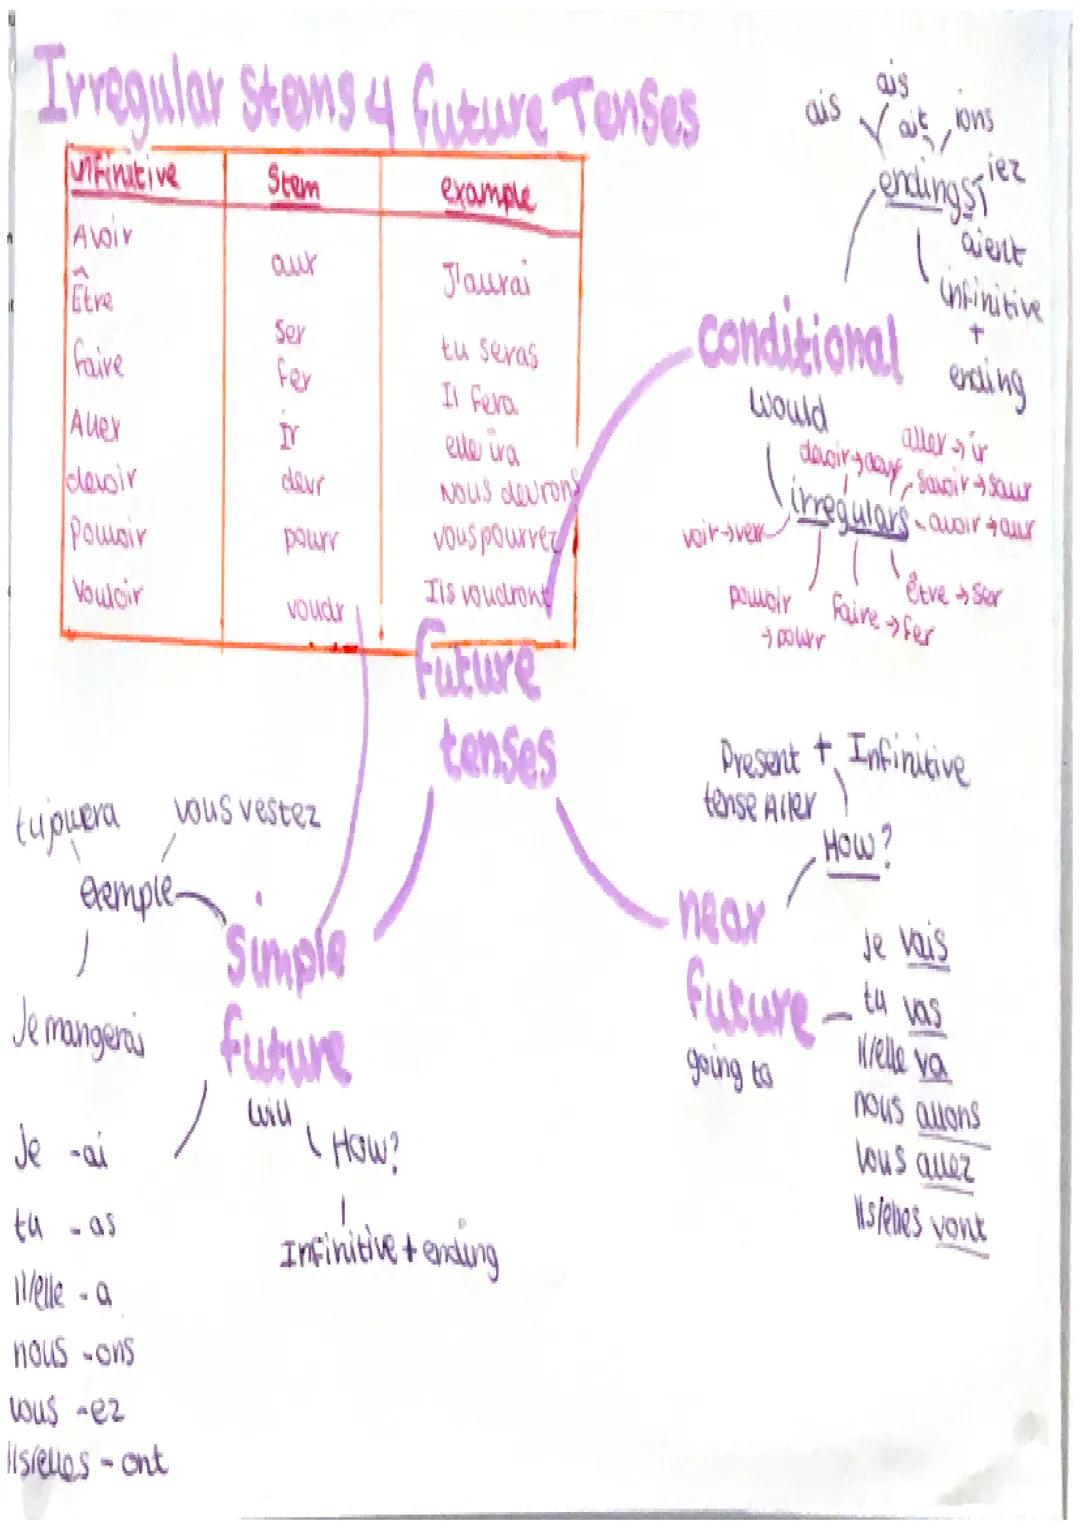 Irregular Stems 4 future Tenses
infinitive Stem example
Avoir aur J'aurai
Être ser tu seras
faire fer Il fera
Aller Ir elle ira
devoir devr Nous devrons
Pouvoir pourr vous pourrez
Vouloir voudr Ils voudront
future
tenses
conditional
would
endings
ais
ais
ait
ions
iez
aient
infinitive
+
ending
irregulars
aller → ir
savoir → saur
avoir → aur
être → ser
faire → fer
pouvoir
→ pourr
voir → verr
near
future
going to
How?
Present + Infinitive
tense Aller
Je vais
tu vas
Il/elle va
nous allons
vous allez
Ils/elles vont
simple
future
will
How?
Infinitive + ending
example
tu jouera
vous restez
Je mangerais
Je -ai
tu -as
Il/elle -a
nous -ons
vous -ez
Ils/elles - ont